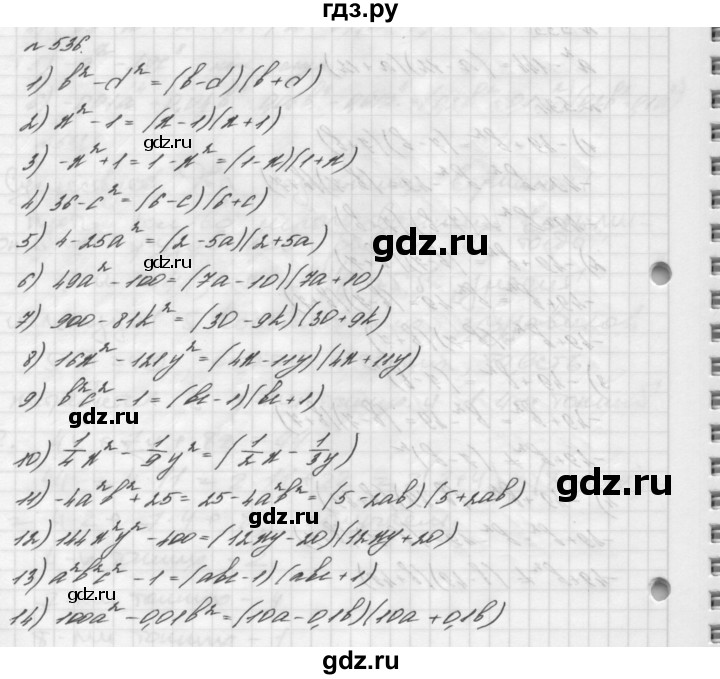 гдз.ру
№ 536.
1) b² - d² = (b - d)(b + d)
2) x² - 1 = (x - 1)(x + 1)
gdz.ru
3) -x² + 1 = 1 - x² = (1 - x)(1 + x)
4) 36 - c² = (6 - c)(6 + c)
5) 4 - 25a² = (2 - 5a)(2 + 5a)
gdz.ru
gdz.ru
6) 49a² - 100 = (7a - 10)(7a + 10)
7) 900 - 81k² = (30 - 9k)(30 + 9k)
8) 16x² - 121y² = (4x - 11y)(4x + 11y)
9) b²c² - 1 = (bc - 1)(bc + 1)
gdz.ru
10) 1/4 x² - 1/9 y² = (1/2 x - 1/3 y)
11) -4a²b² + 25 = 25 - 4a²b² = (5 - 2ab)(5 + 2ab)
gdz.ru
gdz.ru
12) 144x²y² - 400 = (12xy - 20)(12xy + 20)
13) a²b²c² - 1 = (abc - 1)(abc + 1)
gdz.ru
14) 100a² - 0,01b² = (10a - 0,1b)(10a + 0,1b)
gdz.ru